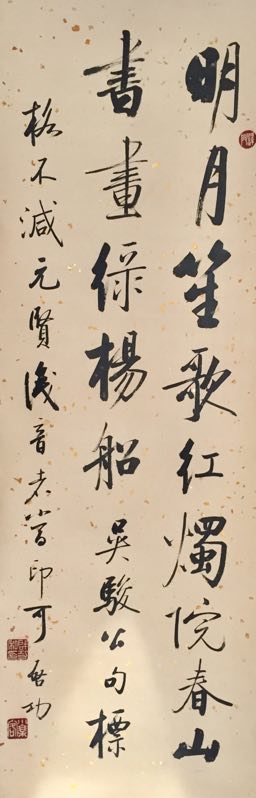 明月笙歌红烛院春山
書畫綠楊船 吴駿公句標
格不減元賢後音老嘗印可 啓功